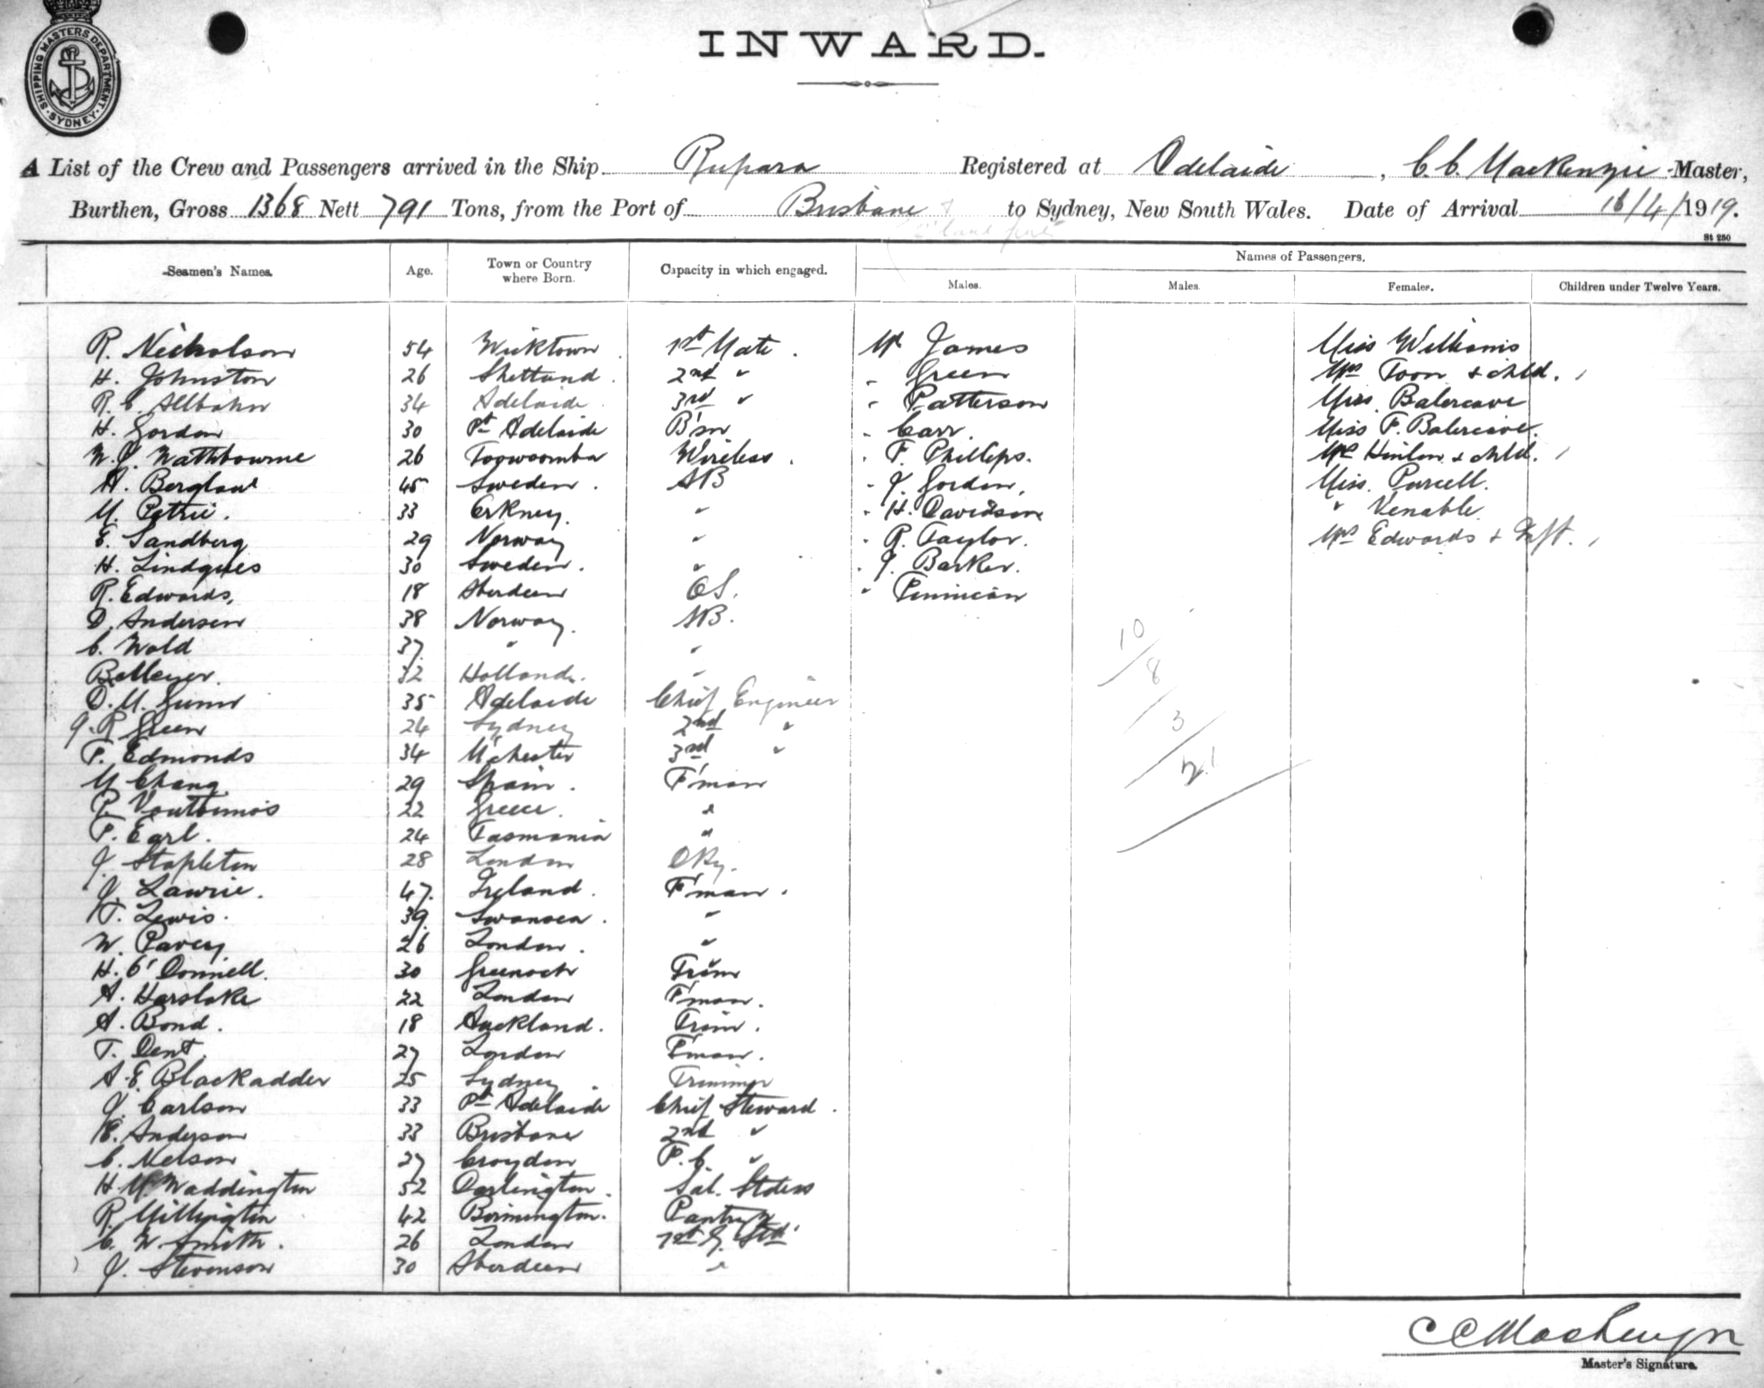 SHIPPING MASTERS DEPARTMENT SYDNEY
INWARD.
A List of the Crew and Passengers arrived in the Ship Rupara Registered at Adelaide, C. C. MacKenzie Master,
Burthen, Gross 1368 Nett 791 Tons, from the Port of Brisbane to Sydney, New South Wales. Date of Arrival 16/4/1919.
St 250
Seamen's Names. Age. Town or Country where Born. Capacity in which engaged. Names of Passengers.
Males. Males. Females. Children under Twelve Years.
R. Nicholson 54 1st Mate. Mr James Miss Williams
H. Johnston 26 Shetland. 2nd " " Green Mrs Toon & child.
34 Adelaide. 3rd " " Patterson
H. Gordon 30 Pt Adelaide B'sn " Carr.
26 Toowoomba Wireless. " F. Phillips. & child.
45 Sweden. AB " J. Gordon. Miss. Purcell.
M. Petrie. 33 Orkney. " " H. Davidson " Venable
E. Sandberg 29 Norway " " R. Taylor. Mrs Edwards &
30 Sweden. " " J. Barker.
R. Edwards. 18 Aberdeen OS. "
D. Andersen 38 Norway. AB.
C. Wold 37 " "
32 Holland. "
35 Adelaide Chief Engineer
J. R Green 24 Sydney 2nd "
P. Edmonds 34 M'chester 3rd "
M Chang 29 Spain. F'man
22 Greece. "
P. Earl. 24 Tasmania "
J. Stapleton 28 London Dky.
J. Lawrie. 47. Ireland. F'man.
T. Lewis. 39. Swansea. "
W. Pavey 26 London. "
H. O'Donnell. 30 Greenock Trim
A. Harslake 22 London F'man.
A. Bond. 18 Auckland. Trim.
T. Dent. 27 London F'man.
A. E. Blackadder 25 Sydney Trimmer
J. Carlson 33 Pt Adelaide Chief Steward.
Anderson 33 Brisbane 2nd "
C. Nelson 27 Croydon P. C. "
H. M. Waddington 52 Darlington. Sal. Stdess
R. Millington 42
C. W Smith. 26 London
J. Stevenson 30 Aberdeen "
10
8
3
21
C C MacKenzie
Master's Signature.